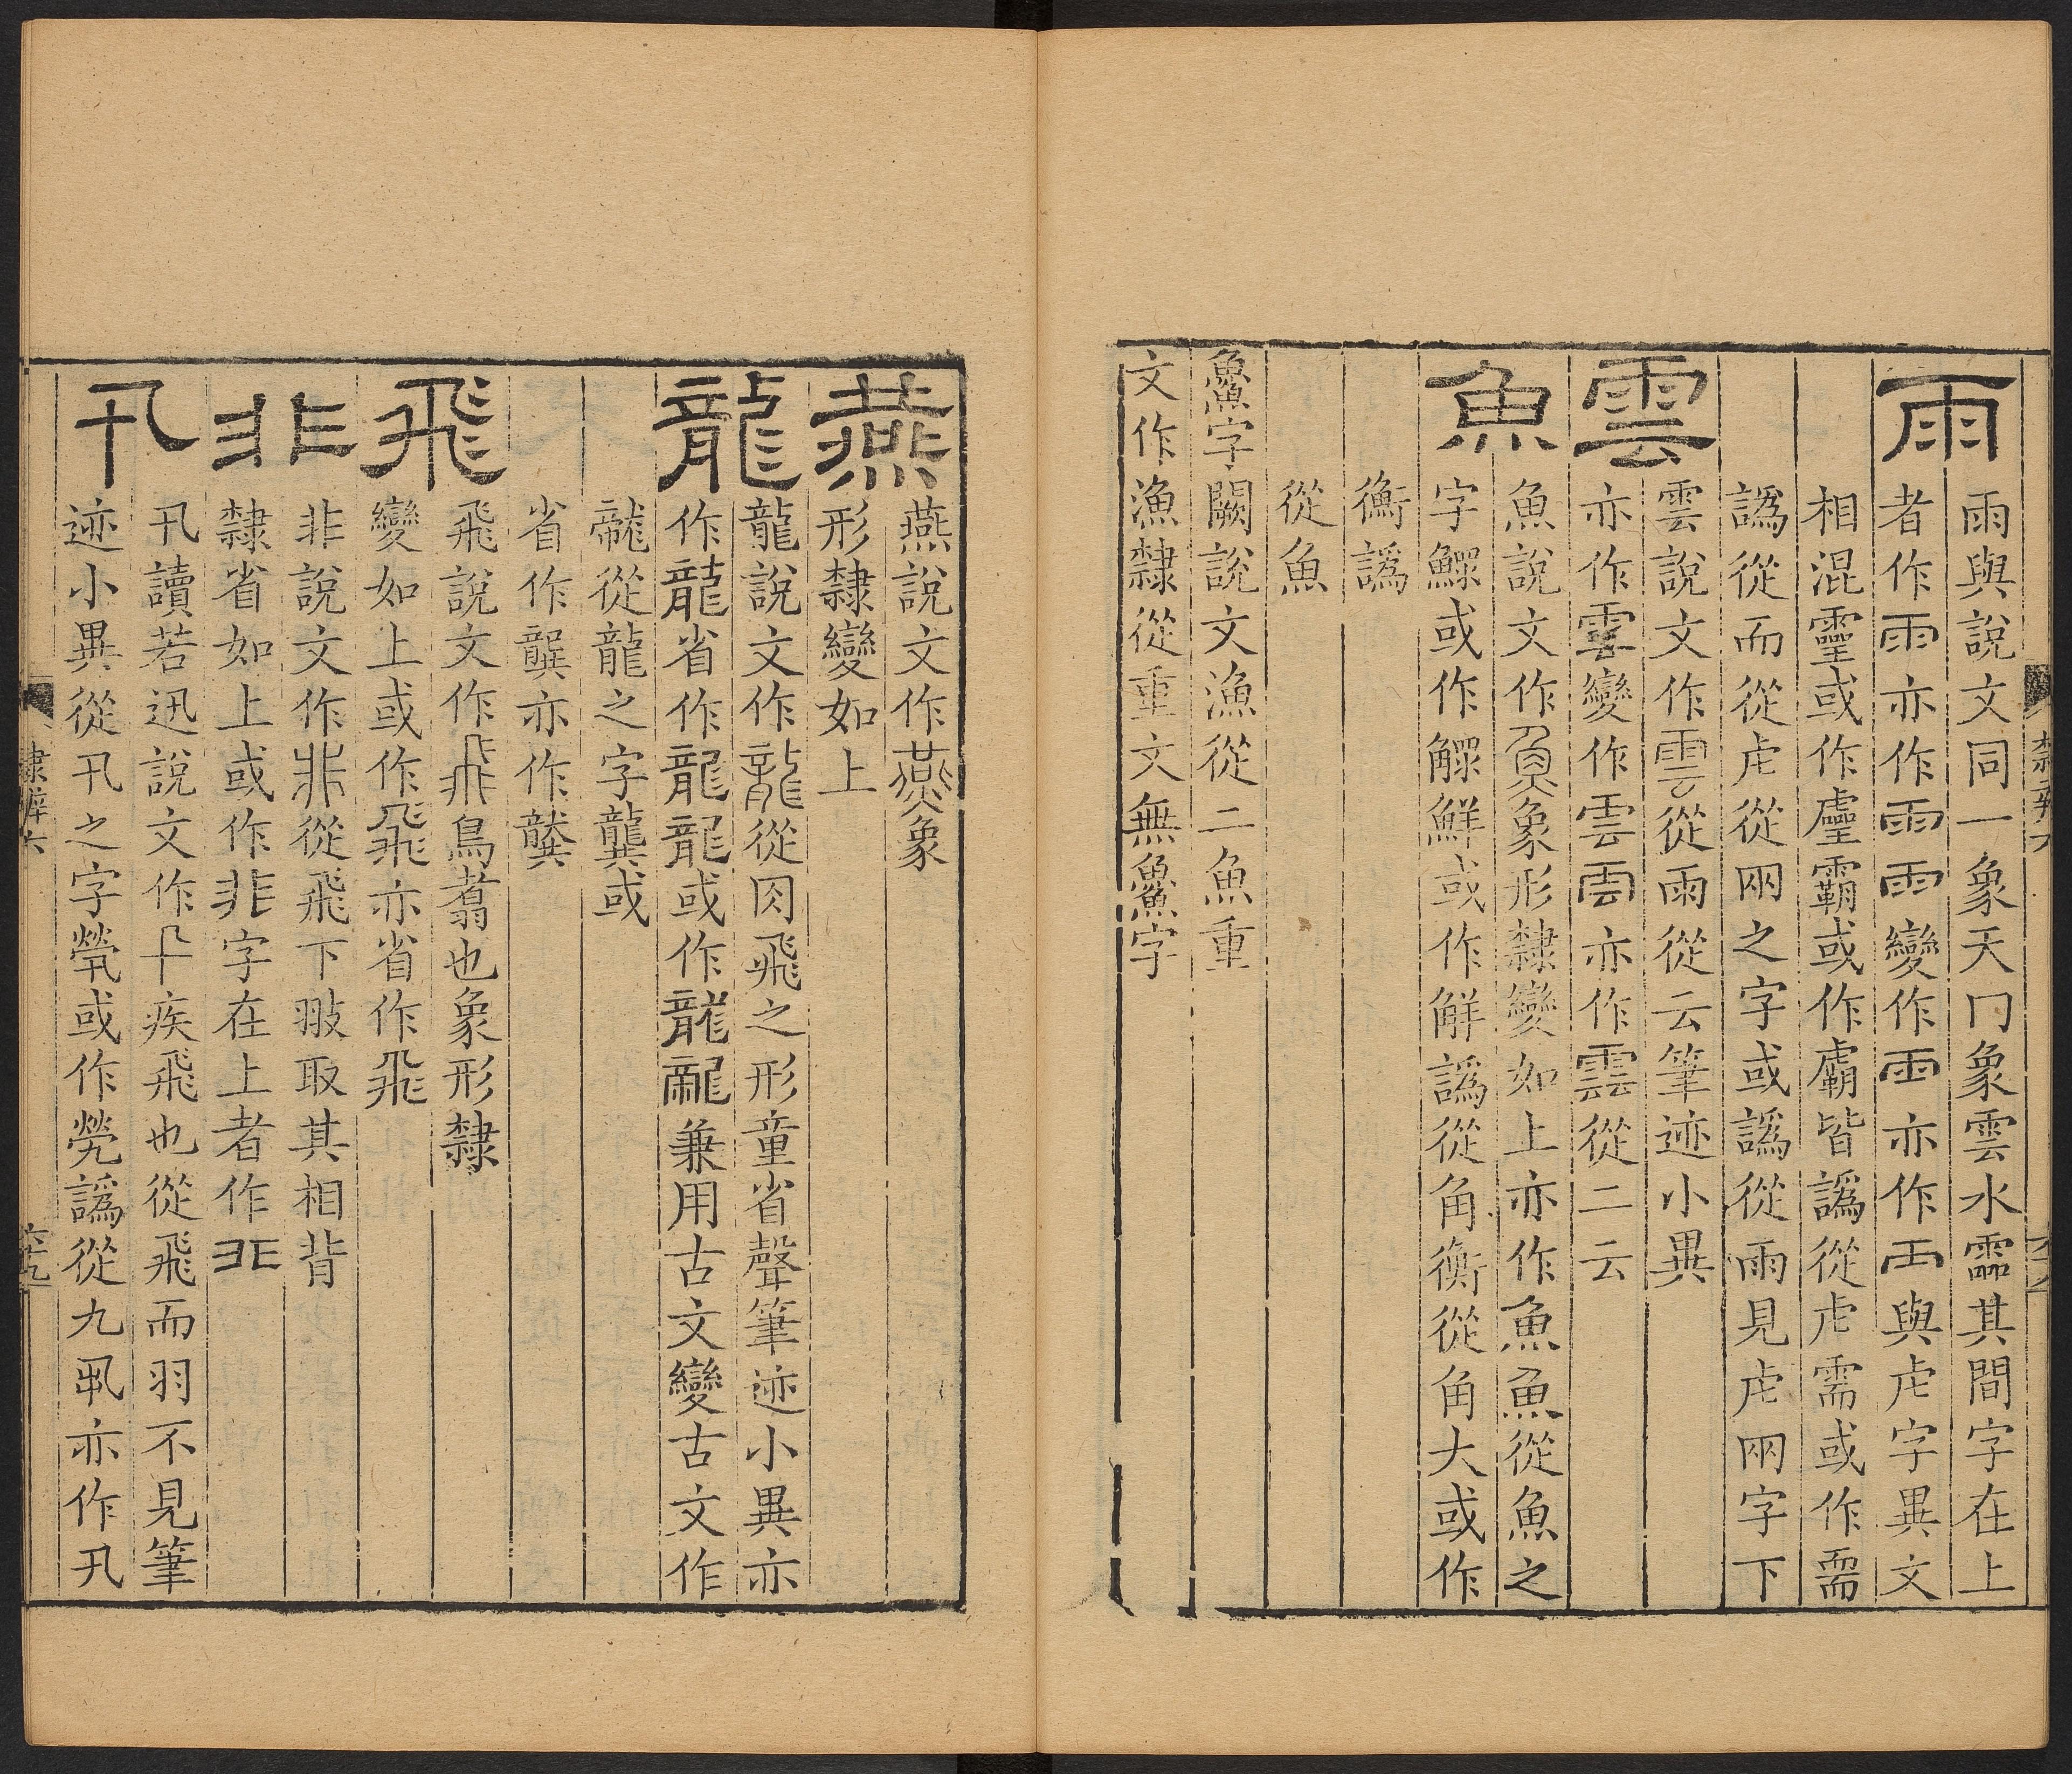 雨
雨與說文同一象天冂象雲水霝其間字在上
者作雨亦作雨雨變作雨亦作雨與虍字異文
相混靈或作䖙霸或作虜皆譌從虍需或作
譌從而從虍從网之字或譌從雨見虍网字下
雲
雲說文作雲從雨從云筆迹小異
亦作雲變作雲雲亦作雲從二云
魚
魚說文作魚象形隸變如上亦作魚魚從魚之
字鰥或作鱞鮮或作觧譌從角衡從角大或作
衡譌
從魚
䲆字闕說文漁從二魚重
文作漁隸從重文無䲆字
隸辨六
六十八
燕
燕說文作燕象
形隸變如上
龍
龍說文作龍從肉飛之形童省聲筆迹小異亦
作龍省作龍龍或作龍龍兼用古文變古文作
從龍之字龔或
省作龔亦作龔
飛
飛說文作飛鳥翥也象形隸
變如上或作飛亦省作飛
非
非說文作非從飛下翄取其相背
隸省如上或作非字在上者作非
卂
卂讀若迅說文作卂疾飛也從飛而羽不見筆
迹小異從卂之字煢或作㷀譌從九虱亦作卂
隸辨六
六十九